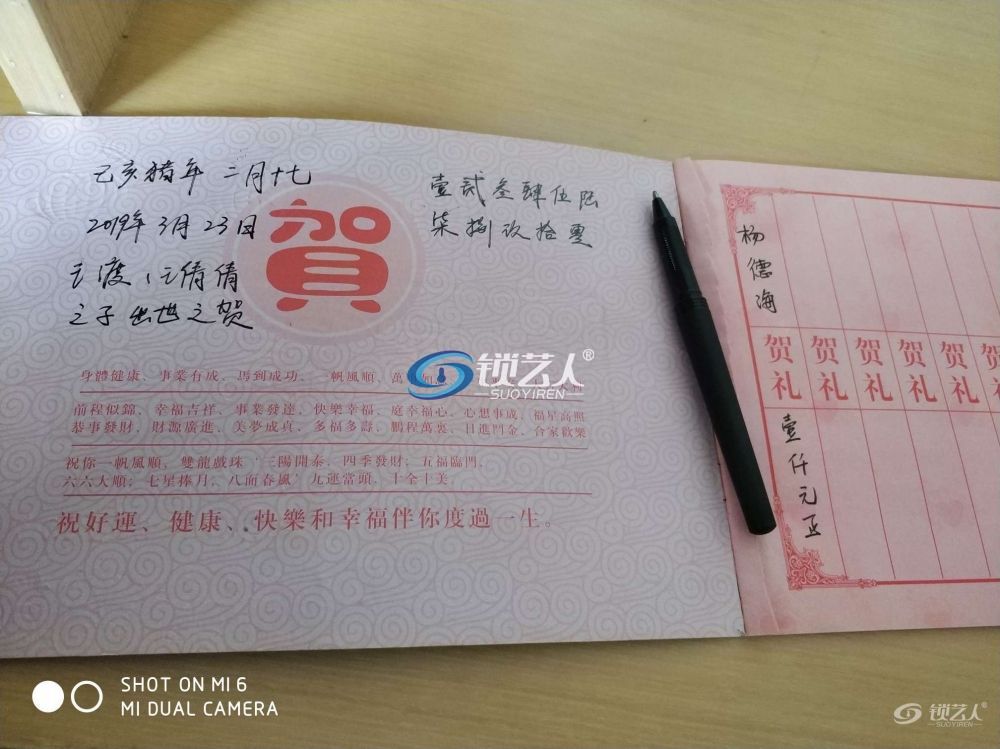 己亥猪年 二月十七
2019年3月23日
王渡、王倩倩
之子出世之贺
賀
壹贰叁肆伍陆
柒捌玖拾零
锁艺人®
SUOYIREN
身體健康、事業有成、馬到成功、一帆風順、萬
前程似錦、幸福吉祥、事業發達、快樂幸福、庭幸福心、心想事成、福星高照
恭事發財、財源廣進、美夢成真、多福多壽、鵬程萬裏、日進鬥金、合家歡樂
祝你一帆風順，雙龍戲珠，三陽開泰，四季發財；五福臨門，
六六大順；七星捧月，八面春風，九運當頭，十全十美。
祝好運、健康、快樂和幸福伴你度過一生。
杨德海
贺礼 贺礼 贺礼 贺礼 贺礼 贺礼
壹仟元正
SHOT ON MI 6
MI DUAL CAMERA
锁艺人®
SUOYIREN